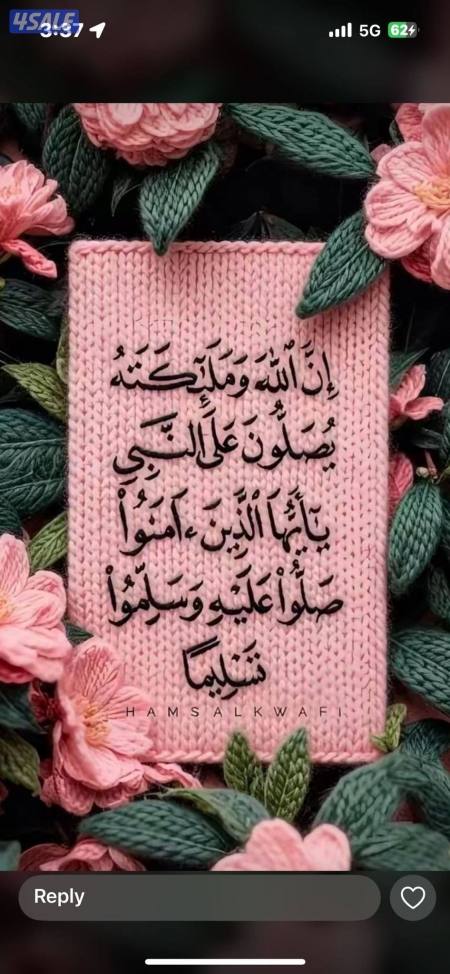 4SALE
3:37
5G
62
إِنَّ ٱللَّهَ وَمَلَٰٓئِكَتَهُۥ
يُصَلُّونَ عَلَى ٱلنَّبِيِّ
يَٰٓأَيُّهَا ٱلَّذِينَ ءَامَنُوا۟
صَلُّوا۟ عَلَيْهِ وَسَلِّمُوا۟
تَسْلِيمًا
HAMSALKWAFI
Reply